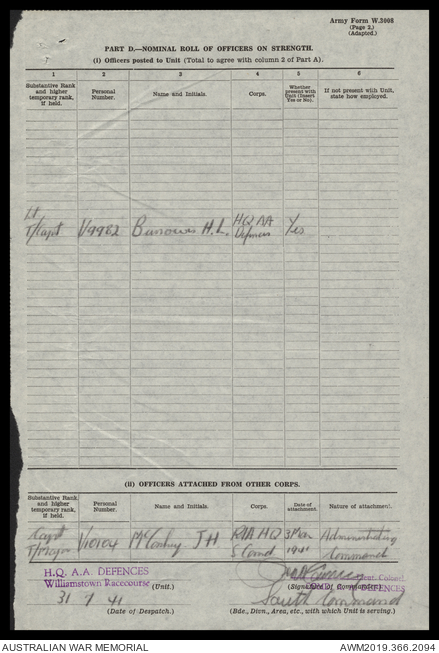 Army Form W.3008
(Page 2.)
(Adapted.)
PART D.—NOMINAL ROLL OF OFFICERS ON STRENGTH.
(i) Officers posted to Unit (Total to agree with column 2 of Part A).
1 2 3 4 5 6
Substantive Rank and higher temporary rank, if held.
Personal Number.
Name and Initials.
Corps.
Whether present with Unit (Insert Yes or No).
If not present with Unit, state how employed.
Lt
T/Capt V9962 Burrowes H.L. HQ AA Defences Yes
(ii) OFFICERS ATTACHED FROM OTHER CORPS.
Substantive Rank and higher temporary rank, if held.
Personal Number.
Name and Initials.
Corps.
Date of attachment.
Nature of attachment.
Capt
T/Major V10104 J H RAA HQ S Comd 3 Mar 1941 Administering Command
H.Q. A.A. DEFENCES
Williamstown Racecourse (Unit.)
Lieutenant Colonel
A DEFENCES
(Signature of Commander.)
31 7 41
(Date of Despatch.)
South Command
(Bde., Divn., Area, etc., with which Unit is serving.)
AUSTRALIAN WAR MEMORIAL
AWM2019.366.2094